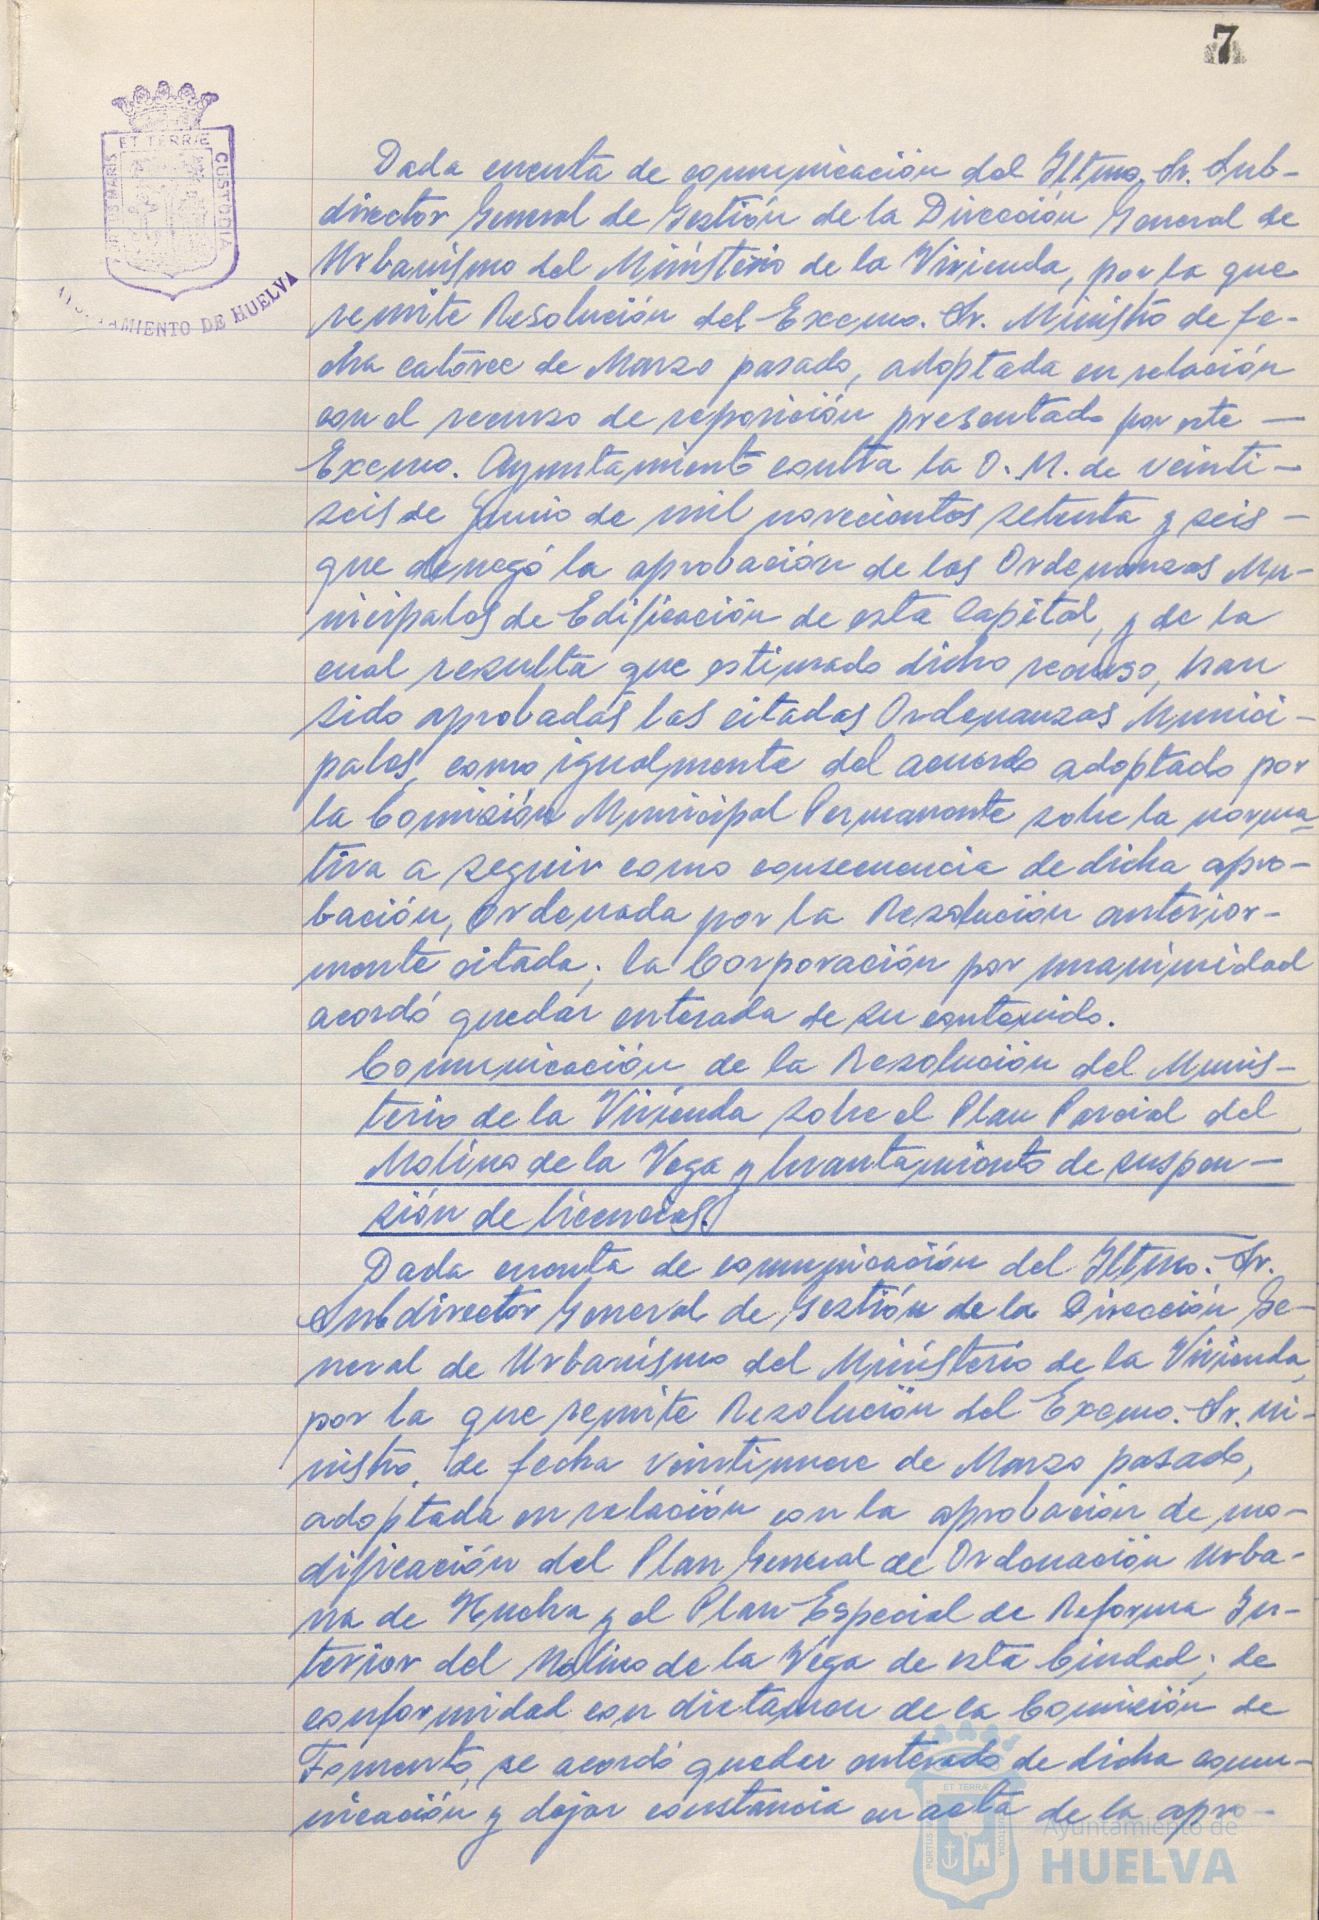 7
ET TERRÆ
PORTUS MARIS
CUSTODIA
AYUNTAMIENTO DE HUELVA
Dada cuenta de comunicación del Iltmo. Sr. Sub-
director General de Gestión de la Dirección General de
Urbanismo del Ministerio de la Vivienda, por la que
remite Resolución del Excmo. Sr. Ministro de fe-
cha catorce de Marzo pasado, adoptada en relación
con el recurso de reposición presentado por este —
Excmo. Ayuntamiento contra la O. M. de veinti-
seis de Junio de mil novecientos setenta y seis -
que denegó la aprobación de las Ordenanzas Mu-
nicipales de Edificación de esta Capital, y de la
cual resulta que estimado dicho recurso, han
sido aprobadas las citadas Ordenanzas Munici-
pales, como igualmente del acuerdo adoptado por
la Comisión Municipal Permanente sobre la norma-
tiva a seguir como consecuencia de dicha apro-
bación, ordenada por la Resolución anterior-
mente citada; la Corporación por unanimidad
acordó quedar enterada de su contenido.
Comunicación de la Resolución del Minis-
terio de la Vivienda sobre el Plan Parcial del
Molino de la Vega y levantamiento de suspen-
sión de licencias.
Dada cuenta de comunicación del Iltmo. Sr.
Subdirector General de Gestión de la Dirección Ge-
neral de Urbanismo del Ministerio de la Vivienda,
por la que remite Resolución del Excmo. Sr. Mi-
nistro, de fecha veintinueve de Marzo pasado,
adoptada en relación con la aprobación de mo-
dificación del Plan General de Ordenación Urba-
na de Huelva y el Plan Especial de Reforma In-
terior del Molino de la Vega de esta Ciudad; de
conformidad con dictamen de la Comisión de
Fomento, se acordó quedar enterado de dicha comu-
nicación y dejar constancia en acta de la apro-
ET TERRÆ
PORTUS MARIS
CUSTODIA
Ayuntamiento de
HUELVA